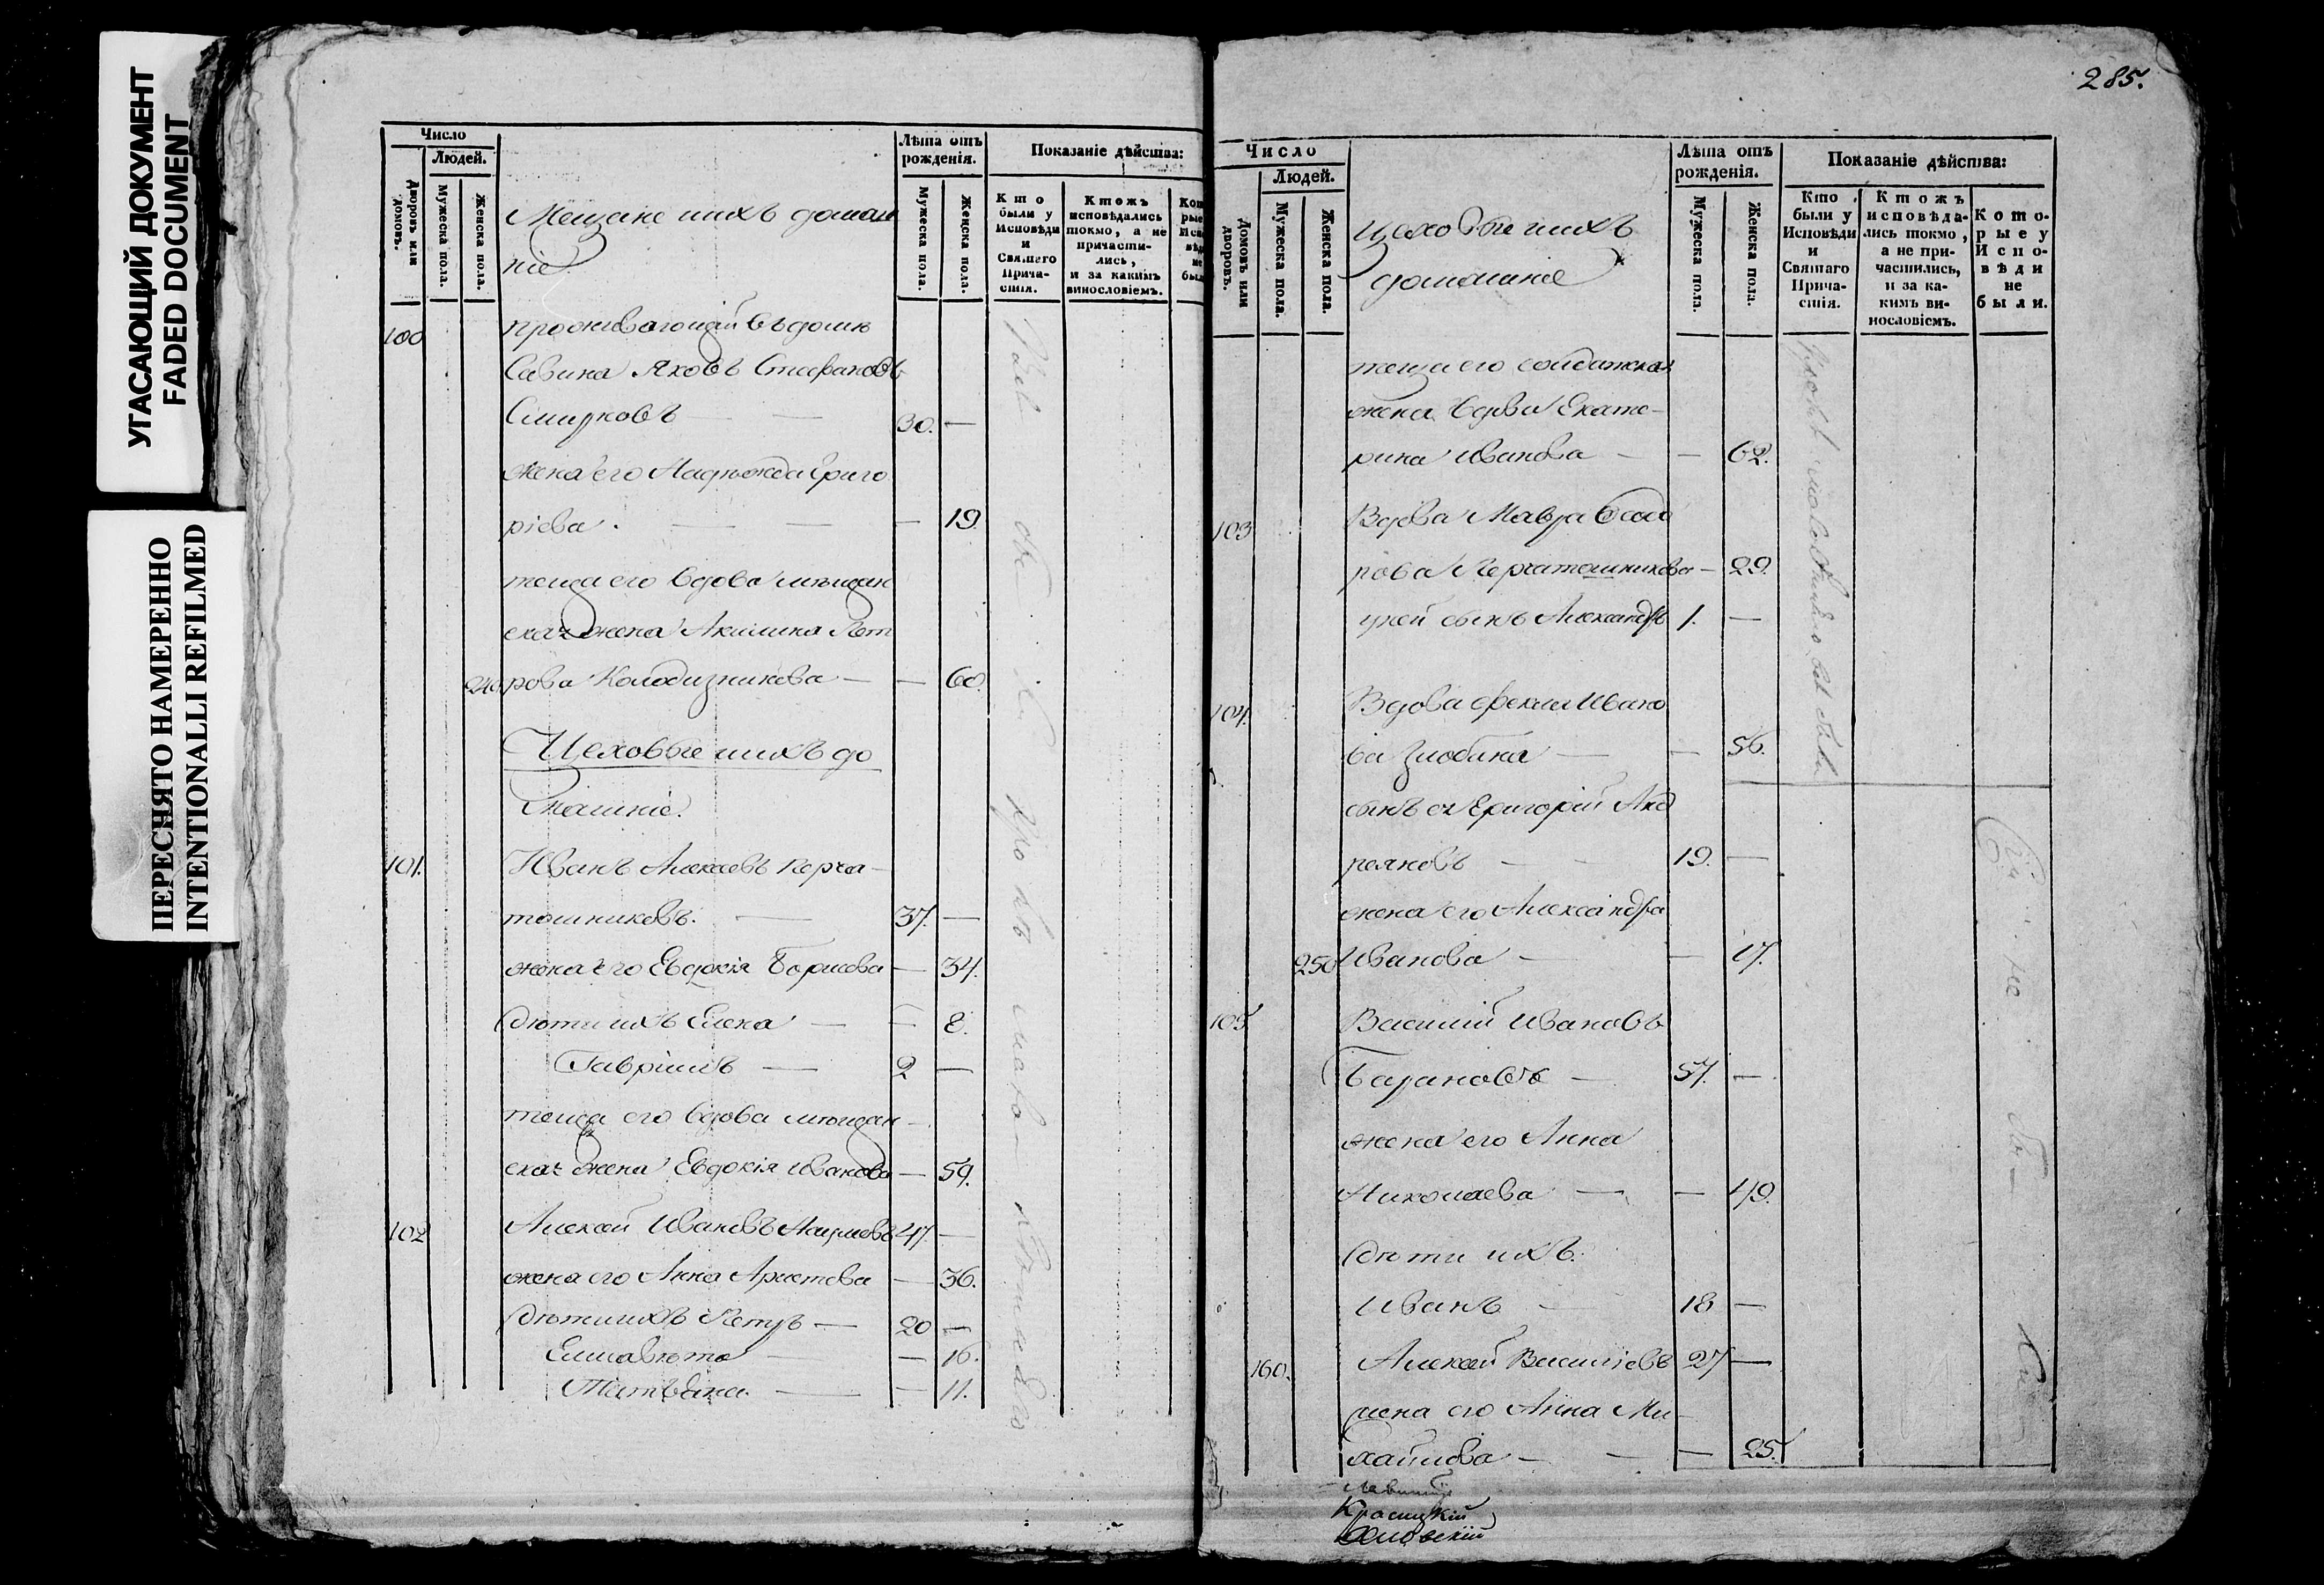 УГАСАЮЩИЙ ДОКУМЕНТ
FADED DOCUMENT
ПЕРЕСНЯТО НАМЕРЕННО
INTENTIONALLI REFILMED
Число
Людей.
Дворовъ или домовъ.
Мужеска пола.
Женска пола.
Мещане и ихъ домаш
ніе.
Лѣта отъ
рожденія.
Мужеска пола.
Женска пола.
Показаніе дѣйства:
Кто
были у
Исповѣди
и
Святаго
Прича-
стія.
Ктожъ
исповѣдались
токмо, а не
причасти-
лись,
и за какимъ
винословіемъ.
100
проживающій въ домѣ
Савина Яковъ Стефановъ
Смирновъ — 30. —
жена его Надѣжда Григо
ріева. — — 19.
теща его вдова мѣщан
ская жена Акилина Пет
240 рова Колодизникова — — 60.
Цеховые и ихъ до
машніе.
101. Иванъ Алексѣевъ Перча-
тошниковъ. — 37. —
жена его Евдокія Борисова — 34.
Дѣти ихъ Елена — — 8.
Гавріилъ — 2 —
теща его вдова мѣщан-
ская жена Евдокія Иванова — 59.
102 Алексѣй Ивановъ Наумовъ 47. —
жена его Анна Аристова — 36.
Дѣти ихъ Петръ — 20 —
Елисавѣта — 16.
Татьяна. — — 11.
285.
Число
Людей.
Домовъ или дворовъ.
Мужеска пола.
Женска пола.
Цеховые и ихъ
домашніе
Лѣта отъ
рожденія.
Мужеска пола.
Женска пола.
Показаніе дѣйства:
Кто
были у
Исповѣди
и
Святаго
Прича-
стія.
Ктожъ
исповѣда-
лись токмо,
а не при-
частились,
и за ка-
кимъ ви-
нословіемъ.
Кото-
рые у
Испо-
вѣди
не
были.
теща его солдатская
жена вдова Екате-
рина Иванова — — 62.
103 Вдова Мавра Ѳедо
рова Перчатошникова — 29.
у ней сынъ Александръ 1. —
104. Вдова Ѳекла Ивано
ва Злобина — — 56.
сынъ ея Григорій Анд
реяновъ — 19. —
жена его Александра
250 Иванова — — 17.
105 Василій Ивановъ
Барановъ — 57. —
жена его Анна
Николаева — — 49.
Дѣти ихъ.
Иванъ — 18 —
160. Алексѣй Васильевъ 27 —
жена его Анна Ми-
хайлова — — 25.
Красицкій